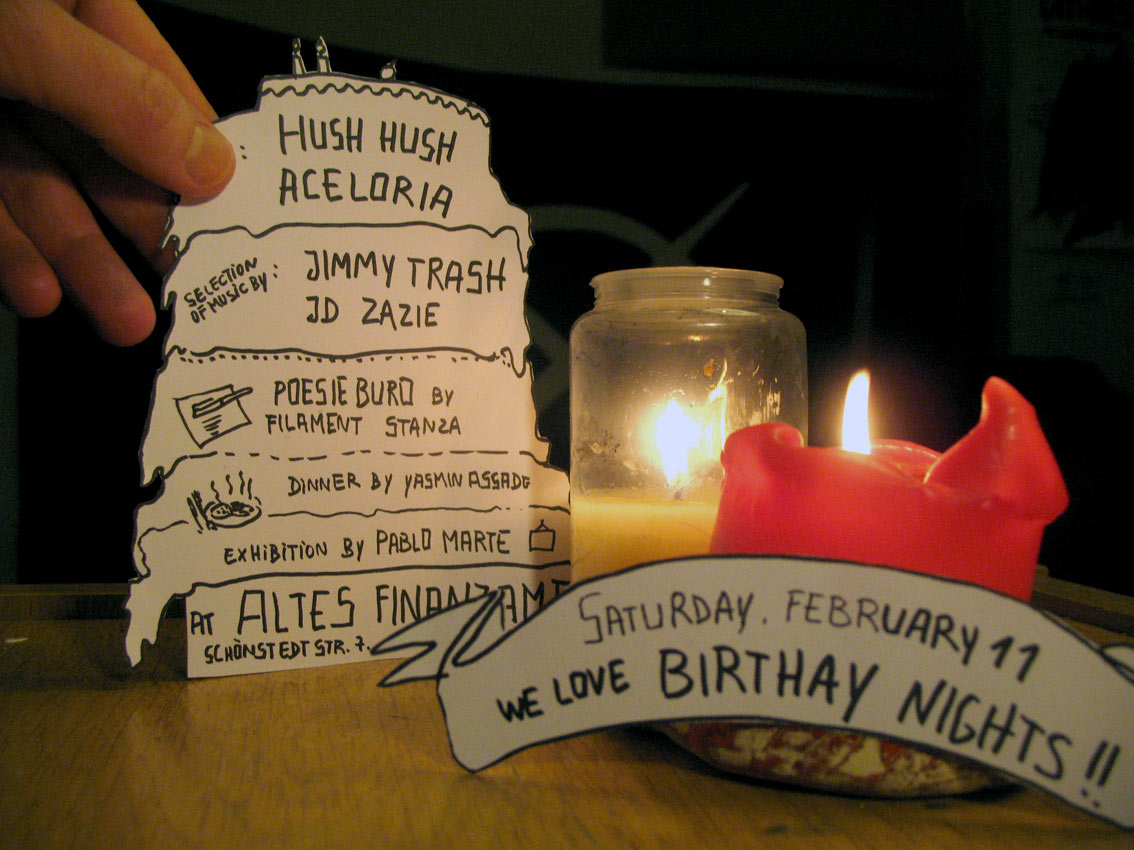 : HUSH HUSH
ACELORIA
SELECTION
OF MUSIC BY: JIMMY TRASH
JD ZAZIE
POESIE BURO BY
FILAMENT STANZA
DINNER BY YASMIN ASSADE
EXHIBITION BY PABLO MARTE
AT ALTES FINANZAMT
SCHÖNSTEDTSTR. 7.
SATURDAY. FEBRUARY 11
WE LOVE BIRTHAY NIGHTS!!